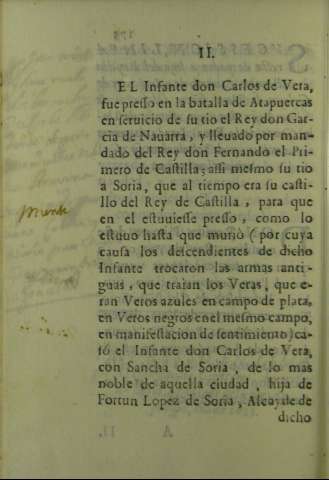 II.
EL Infante don Carlos de Vera,
fue presso en la batalla de Atapuercas
en seruicio de su tio el Rey don Gar-
cia de Nauarra, y lleuado por man-
dado del Rey don Fernando el Pri-
mero de Castilla; assi mesmo su tio
a Soria, que al tiempo era su casti-
llo del Rey de Castilla, para que
en el estuuiesse presso, como lo
estuuo hasta que murió (por cuya
causa los descendientes de dicho
Infante trocaron las armas anti-
guas, que traian los Veras, que e-
ran Veros azules en campo de plata,
en Veros negros en el mesmo campo,
en manifestacion de sentimiento) ca-
só el Infante don Carlos de Vera,
con Sancha de Soria, de lo mas
noble de aquella ciudad, hija de
Fortun Lopez de Soria, Alcayde de
dicho